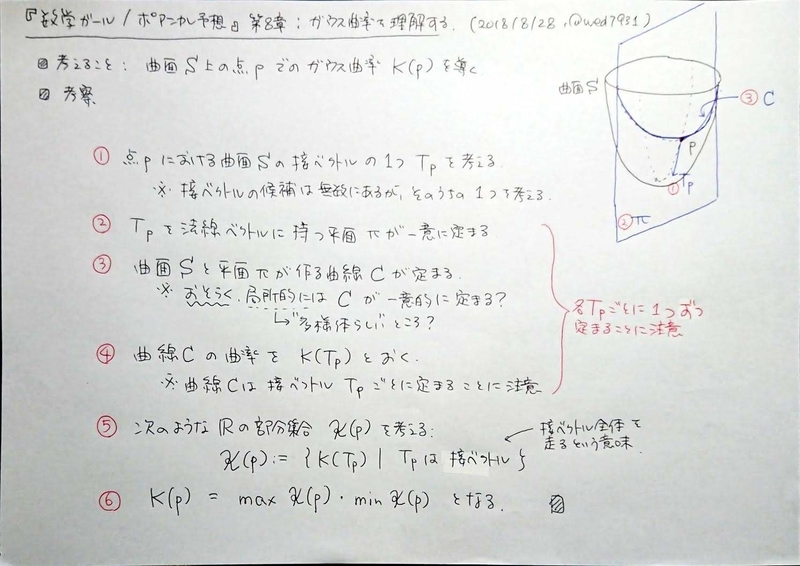 『数学ガール/ポアンカレ予想』第8章:ガウス曲率を理解する。(2018/8/28, @wed7931)
▨ 考えること: 曲面S上の点pでのガウス曲率 K(p)を導く
▨ 考察
曲面S
③ C
p
① Tp
② π
① 点pにおける曲面Sの接ベクトルの1つ Tpを考える.
※ 接ベクトルの候補は無数にあるが, そのうちの1つを考える.
② Tpを法線ベクトルに持つ平面πが一意に定まる
③ 曲面Sと平面πが作る曲線Cが定まる.
※ おそらく, 局所的には Cが一意的に定まる?
↳"多様体らしい"ところ?
④ 曲線Cの曲率を K(Tp)とおく.
※ 曲線Cは接ベクトルTpごとに定まることに注意
各Tpごとに1つずつ
定まることに注意
⑤ 次のようなℝの部分集合 𝒦(p)を考える:
𝒦(p) := { K(Tp) | Tpは接ベクトル }
接ベクトル全体を
走るという意味.
⑥ K(p) = max 𝒦(p)・min 𝒦(p) となる. ▨